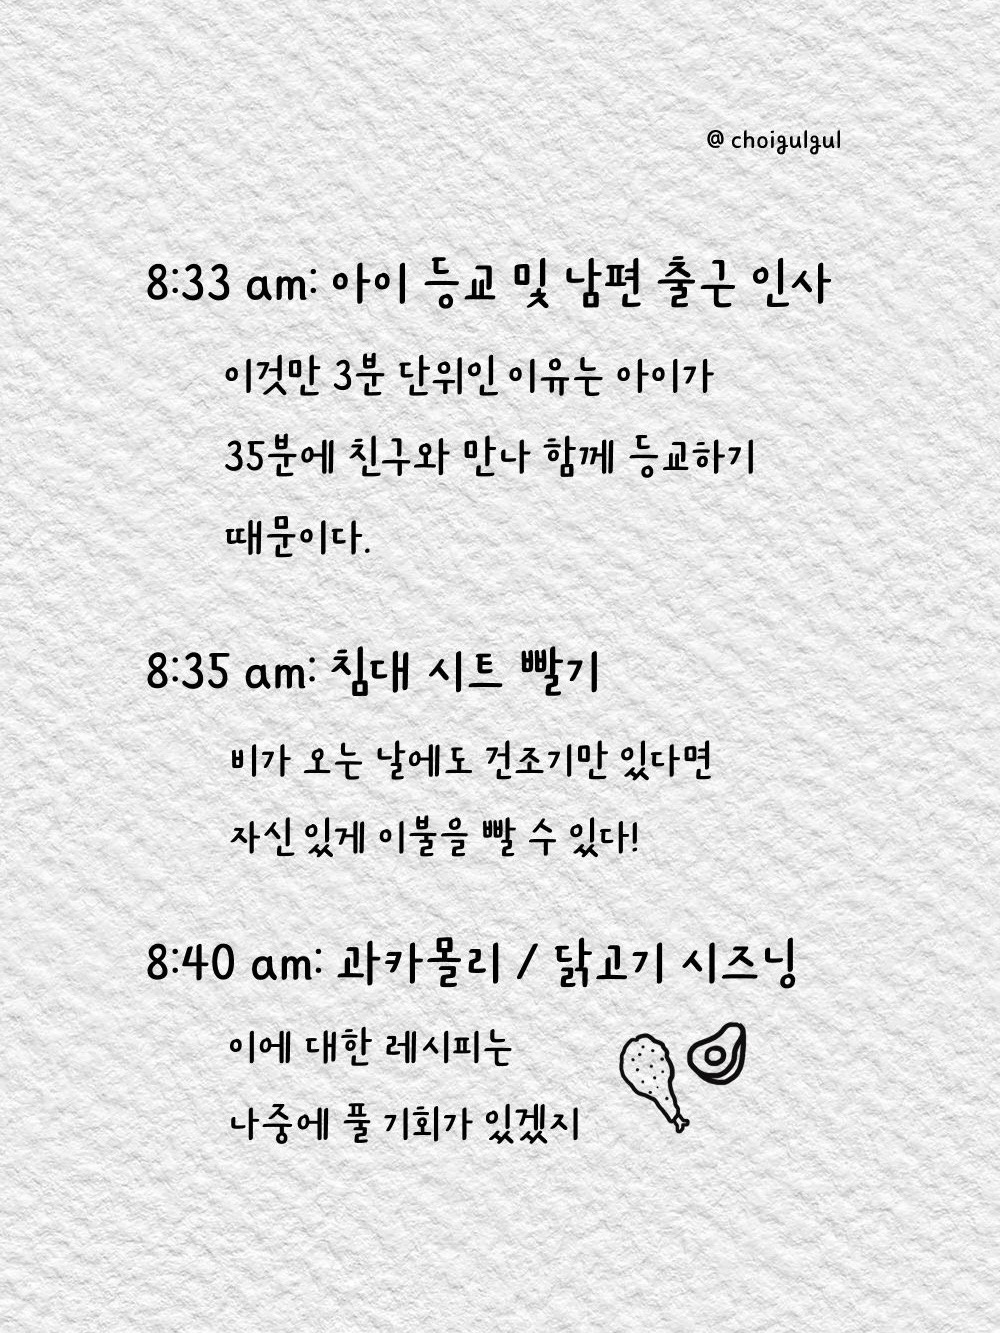 @ choigulgul
8:33 am: 아이 등교 및 남편 출근 인사
이것만 3분 단위인 이유는 아이가
35분에 친구와 만나 함께 등교하기
때문이다.
8:35 am: 침대 시트 빨기
비가 오는 날에도 건조기만 있다면
자신 있게 이불을 빨 수 있다!
8:40 am: 과카몰리 / 닭고기 시즈닝
이에 대한 레시피는
나중에 풀 기회가 있겠지